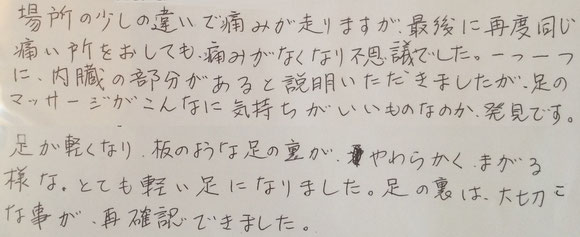 場所の少しの違いで痛みが走りますが、最後に再度同じ
痛い所をおしても、痛みがなくなり不思議でした。一つ一つ
に、内臓の部分があると説明いただきましたが、足の
マッサージがこんなに気持ちがいいものなのか、発見です。
足が軽くなり、板のような足の裏が、やわらかく、まがる
様な。とても軽い足になりました。足の裏は、大切こ
な事が、再確認できました。